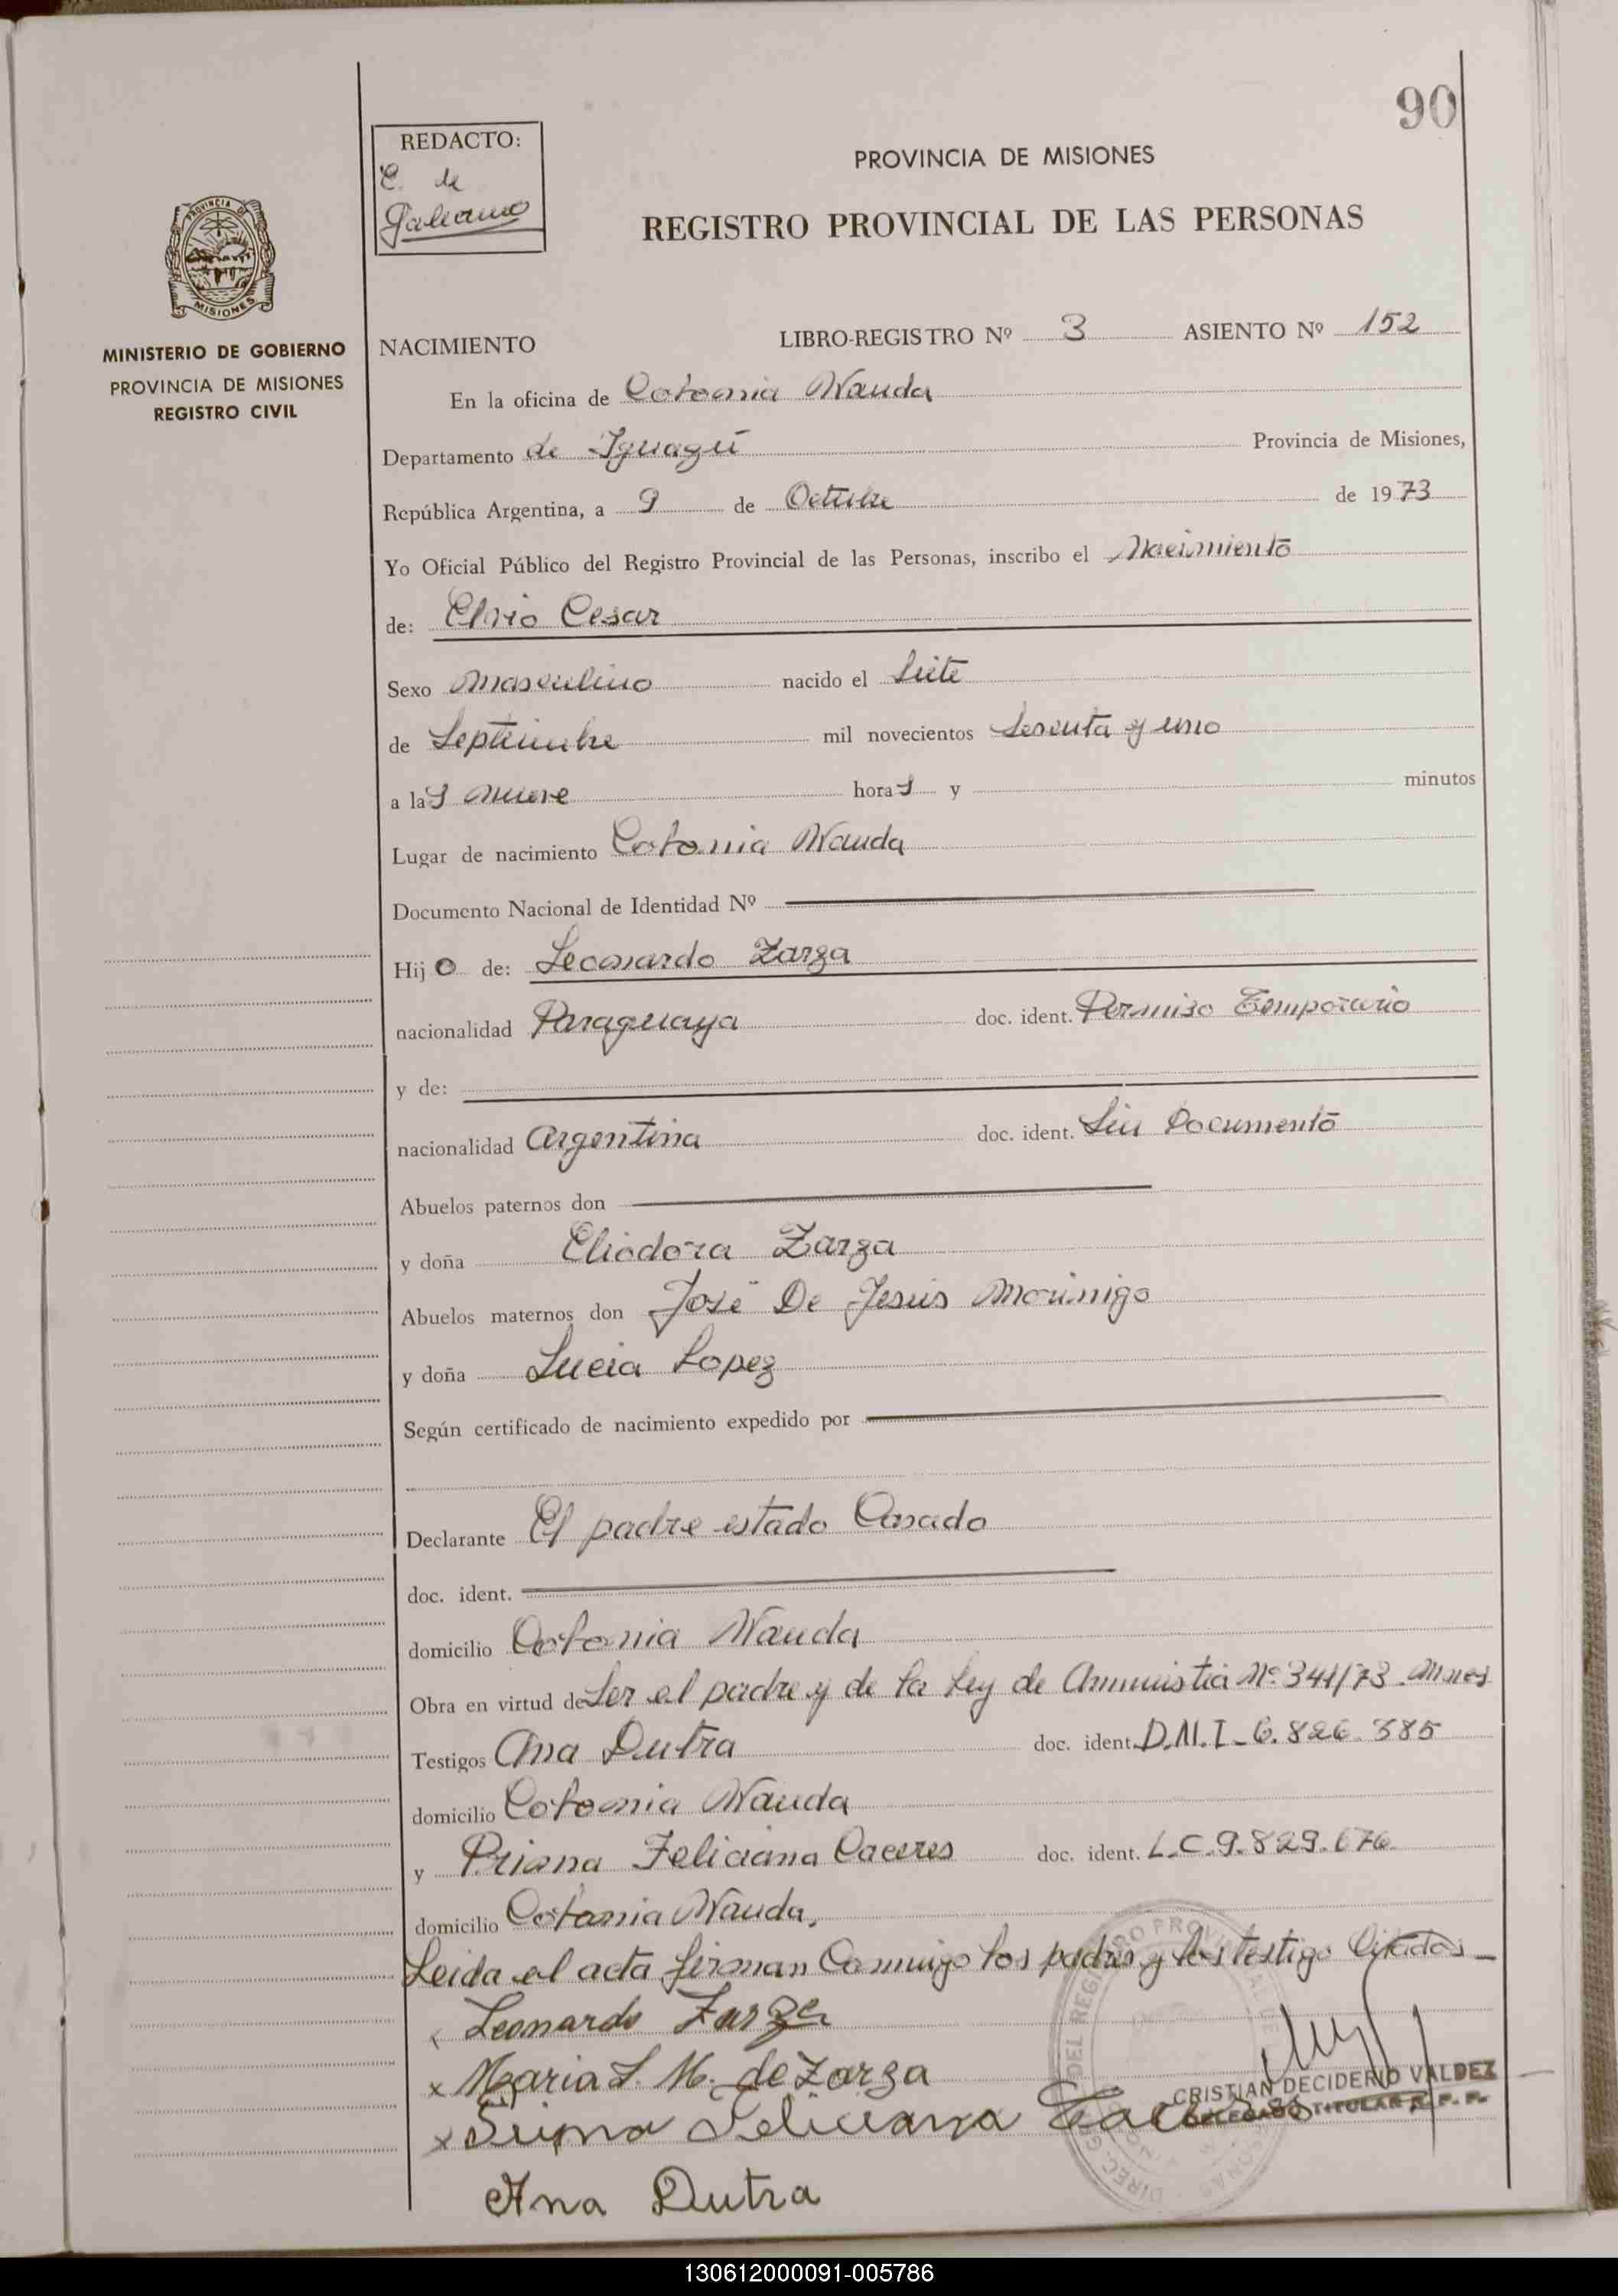 90
REDACTO:
C. de
Galeano
PROVINCIA DE MISIONES
REGISTRO PROVINCIAL DE LAS PERSONAS
PROVINCIA DE
MISIONES
MINISTERIO DE GOBIERNO
PROVINCIA DE MISIONES
REGISTRO CIVIL
NACIMIENTO LIBRO-REGISTRO Nº 3 ASIENTO Nº 152
En la oficina de Colonia Wanda
Departamento de Iguazú Provincia de Misiones,
República Argentina, a 9 de Octubre de 1973
Yo Oficial Público del Registro Provincial de las Personas, inscribo el Nacimiento
de: Elvio Cesar
Sexo Masculino nacido el Siete
de Septiembre mil novecientos Sesenta y uno
a las nueve horas y minutos
Lugar de nacimiento Colonia Wanda
Documento Nacional de Identidad Nº
Hijo de: Leonardo Zarza
nacionalidad Paraguaya doc. ident. Permiso Temporario
y de:
nacionalidad Argentina doc. ident. Sin Documento
Abuelos paternos don
y doña Eliodora Zarza
Abuelos maternos don José De Jesús Morinigo
y doña Lucia Lopez
Según certificado de nacimiento expedido por
Declarante El padre estado Casado
doc. ident.
domicilio Colonia Wanda
Obra en virtud de Ser el padre y de la Ley de Amnistia Nº 341/73. Mnes
Testigos Ana Dutra doc. ident. D.N.I. 6.826.385
domicilio Colonia Wanda
y Feliciana Caceres doc. ident. L.C.9.829.676
domicilio Colonia Wanda,
Leida el acta firman Conmigo los padres y los testigo Citados
Leonardo Zarza
x Maria L. M. de Zarza
x Feliciana Caceres
CRISTIAN DECIDERIO VALDEZ
DELEGADO TITULAR R. P. P.
Ana Dutra
130612000091-005786